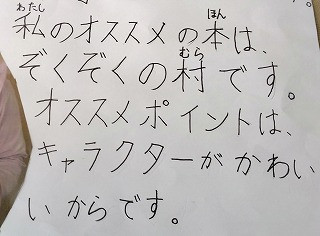 私のオススメの本は、
ぞくぞくの村です。
オススメポイントは、
キャラクターがかわい
いからです。